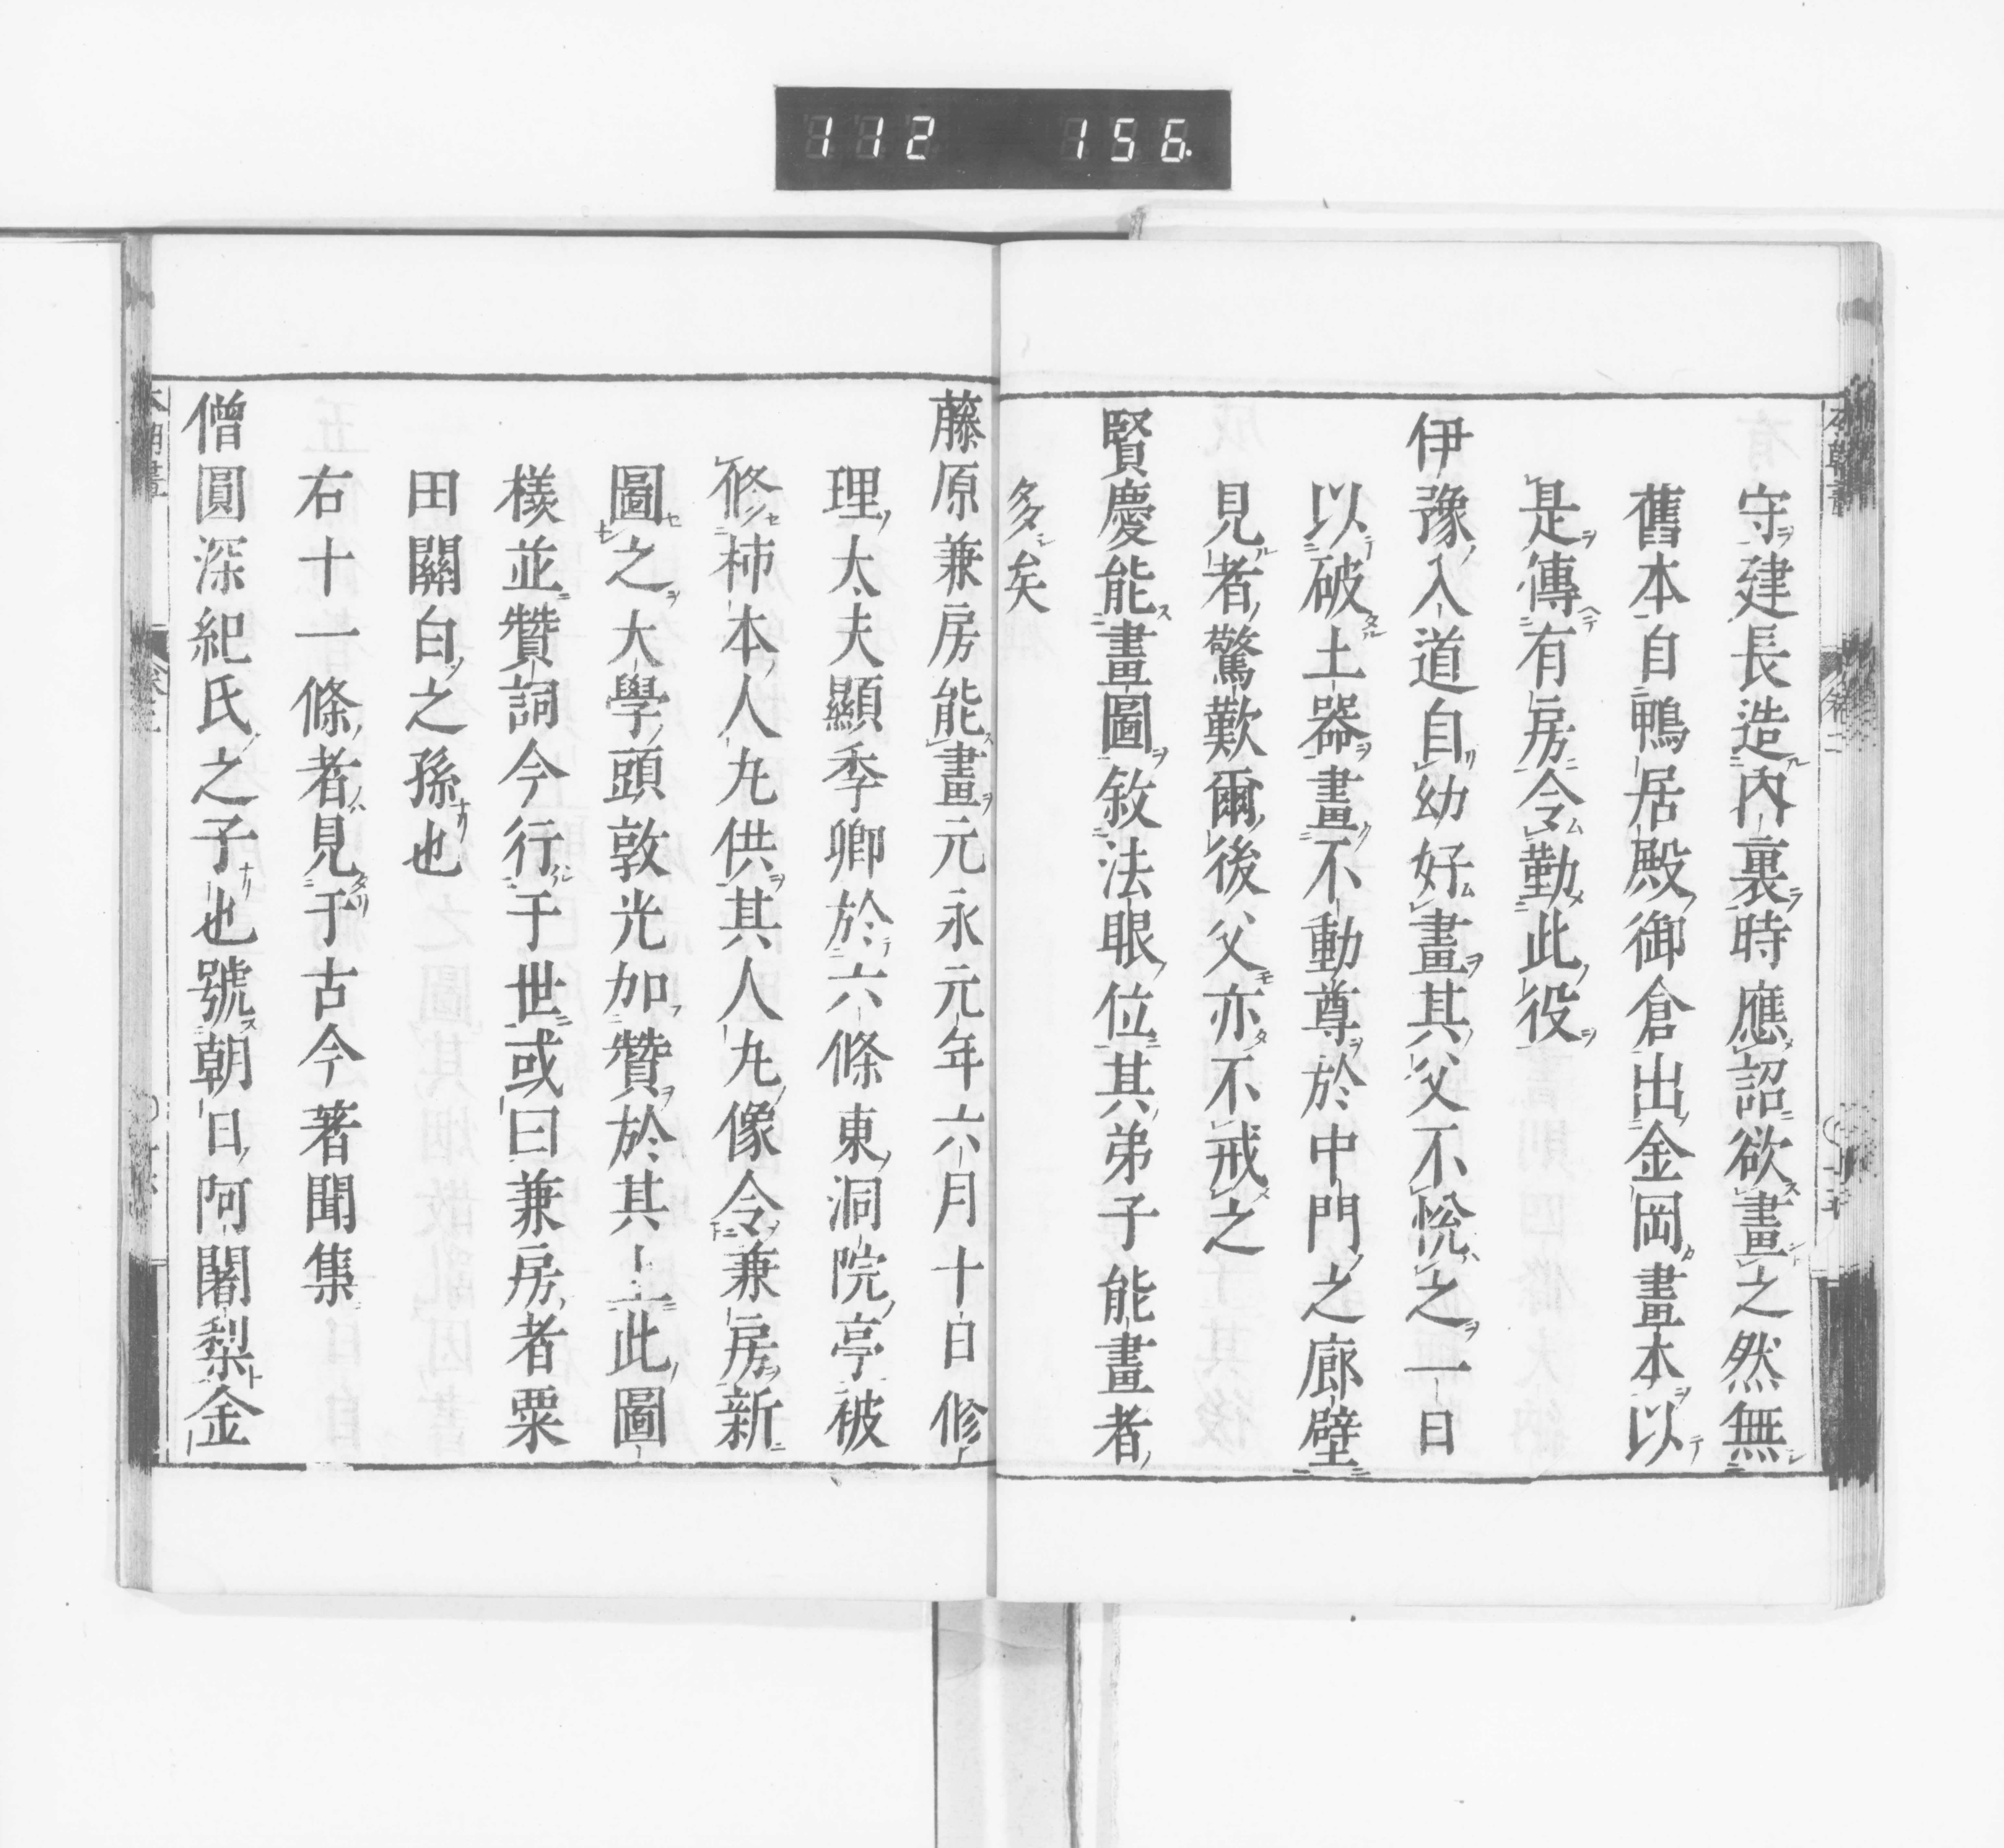 112 156.
守建長造內裏時應詔欲畫之然無
舊本自鴨居殿御倉出金岡畫本以
是傳有房令勤此役
伊豫入道自幼好畫其父不悅之一日
以破土器畫不動尊於中門之廊壁
見者驚歎爾後父亦不戒之
賢慶能畫圖敘法眼位其弟子能畫者
多矣
藤原兼房能畫元永元年六月十日修
理太夫顯季卿於六條東洞院亭被
修柿本人丸供其人丸像令兼房新
圖之大學頭敦光加贊於其上此圖
樣並贊詞今行于世或曰兼房者粟
田關白之孫也
右十一條者見于古今著聞集
僧圓深紀氏之子也號朝日阿闍梨金